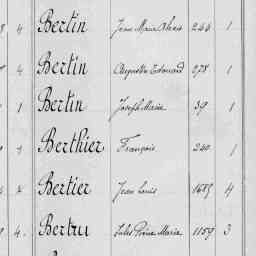 4 Bertin Jean Marie Alexis 244 1
4 Bertin Auguste Edouard 278 1
1 Bertin Joseph Marie 39 1
1 Berthier François 240 1
x Bertier Jean Louis 1685 4
4. Bertru Jules Marie 1159 3